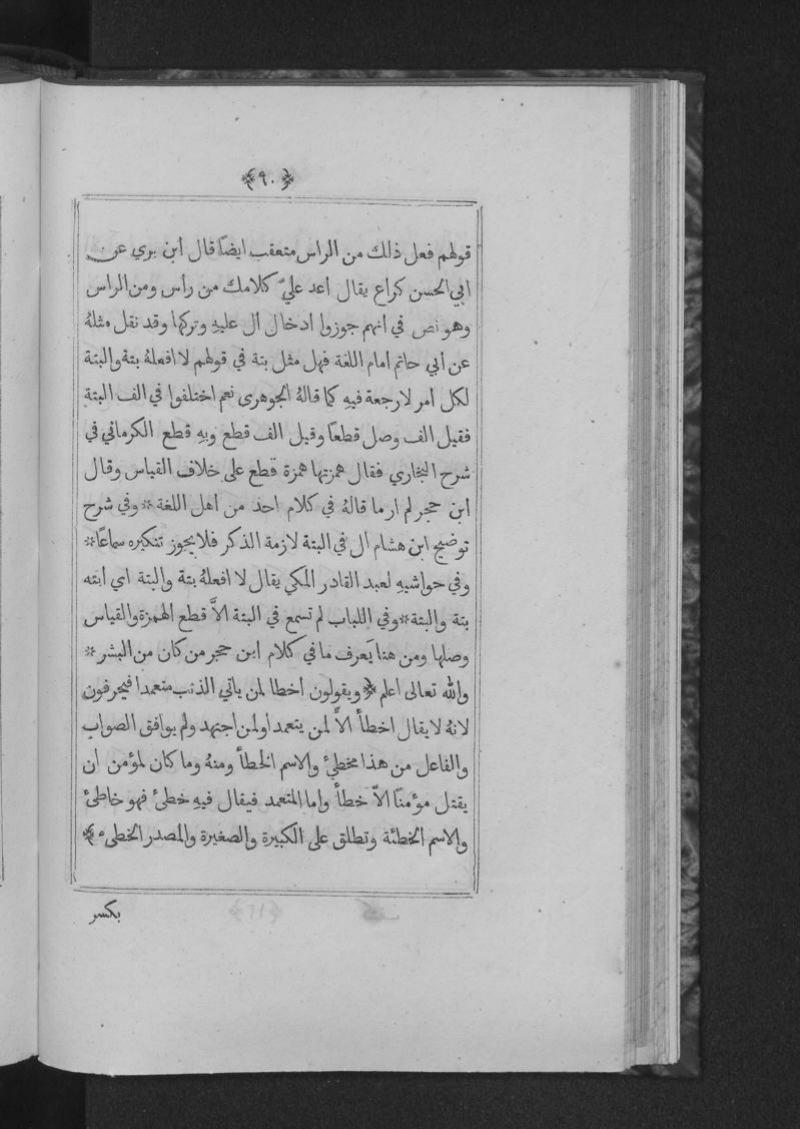 ﴿٩٠﴾
قولهم فعل ذلك من الراس متعقب ايضًا قال ابن بري عن
ابي الحسن كراع يقال اعد عليّ كلامك من راس ومن الراس
وهو نص في انهم جوزوا ادخال ال عليهِ وتركها وقد نقل مثلهُ
عن أبي حاتم امام اللغة فهل مثل بتة في قولهم لا افعلهُ بتة والبتة
لكل امر لا رجعة فيهِ كما قالهُ الجوهرى نعم اختلفوا في الف البتة
فقيل الف وصل قطعًا وقيل الف قطع وبهِ قطع الكرماني في
شرح البخاري فقال همزتها همزة قطع على خلاف القياس وقال
ابن حجر لم ار ما قالهُ في كلام احد من اهل اللغة * وفي شرح
توضيح ابن هشام ال في البتة لازمة الذكر فلا يجوز تنكيره سماعًا *
وفي حواشيهِ لعبد القادر المكي يقال لا افعلهُ بتة والبتة اي ابته
بتة والبتة * وفي اللباب لم تسمع في البتة الاَّ قطع الهمزة والقياس
وصلها ومن هنا يَعرف ما في كلام ابن حجر من كان من البشر *
والله تعالى اعلم ﴿ ويقولون اخطا لمن ياتي الذنب متعمدا فيحرفون
لانهُ لا يقال اخطأ الاَّ لمن يتعمد اولمن اجتهد ولم يوافق الصواب
والفاعل من هذا مخطئ والاسم الخطأ ومنهُ وما كان لمؤمن ان
يقتل مؤمنًا الاّ خطأ واما المتعمد فيقال فيهِ خطئ فهو خاطئ
والاسم الخطئة وتطلق على الكبيرة والصغيرة والمصدر الخطيء ﴾
بكسر